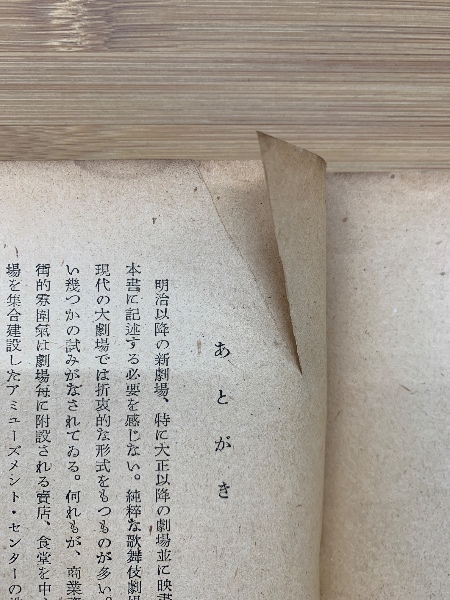 あとがき
明治以降の新劇場、特に大正以降の劇場並に映畫
本書に記述する必要を感じない。純粹な歌舞伎劇場
現代の大劇場では折衷的な形式をもつものが多い。
い幾つかの試みがなされてゐる。何れもが、商業
街的雰圍氣は劇場每に附設される賣店、食堂を中、
場を集合建設したアミューズメント・センターの